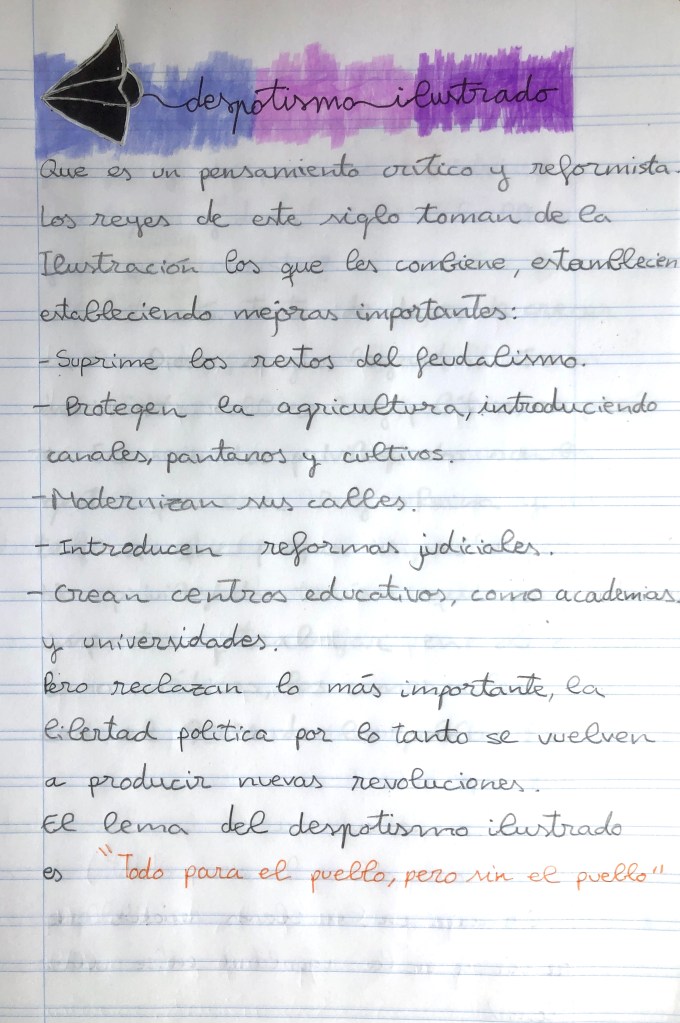 despotismo ilustrado
Que es un pensamiento crítico y reformista.
Los reyes de este siglo toman de la
Ilustración los que les combiene, establecien
estableciendo mejoras importantes:
- Suprime los restos del feudalismo.
- Protegen la agricultura, introduciendo
canales, pantanos y cultivos.
- Modernizan sus calles.
- Introducen reformas judiciales.
- Crean centros educativos, como academias.
y universidades.
Pero reclazan lo más importante, la
libertad política por lo tanto se vuelven
a producir nuevas revoluciones.
El lema del despotismo ilustrado
es "Todo para el pueblo, pero sin el pueblo"